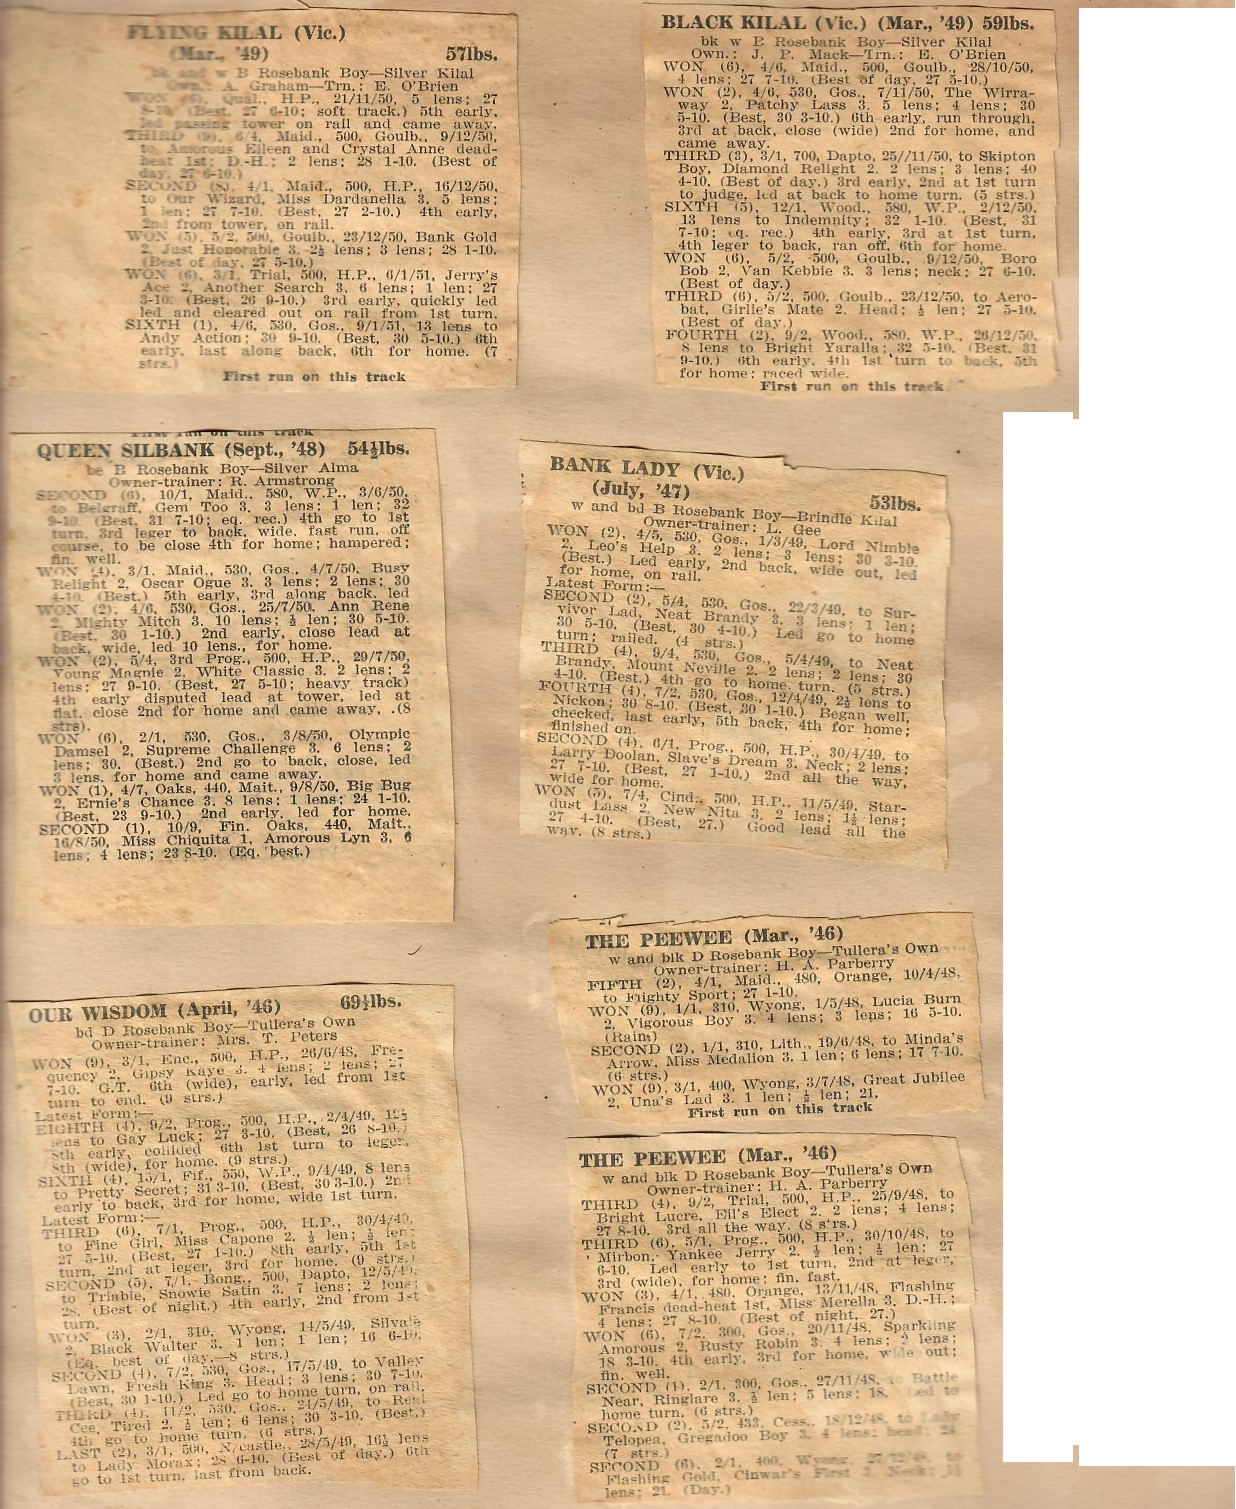 FLYING KILAL (Vic.)
(Mar., '49) 57lbs.
bk and w B Rosebank Boy—Silver Kilal
Own.: A. Graham—Trn.: E. O'Brien
WON (6), Qual., H.P., 21/11/50, 5 lens; 27
8-10. (Best. 27 6-10; soft track.) 5th early,
led passing tower on rail and came away.
THIRD (9), 6/4, Maid., 500, Goulb., 9/12/50,
to Amorous Eileen and Crystal Anne dead-
heat 1st; D.-H.; 2 lens; 28 1-10. (Best of
day, 27 6-10.)
SECOND (8), 4/1, Maid., 500, H.P., 16/12/50,
to Our Wizard, Miss Dardanella 3. 5 lens;
1 len; 27 7-10. (Best, 27 2-10.) 4th early,
2nd from tower, on rail.
WON (5), 5/2, 500, Goulb., 23/12/50, Bank Gold
2, Just Honorable 3. 2½ lens; 3 lens; 28 1-10.
(Best of day, 27 5-10.)
WON (6), 3/1, Trial, 500, H.P., 6/1/51, Jerry's
Ace 2, Another Search 3. 6 lens; 1 len; 27
3-10. (Best, 26 9-10.) 3rd early, quickly led
led and cleared out on rail from 1st turn.
SIXTH (1), 4/6, 530, Gos., 9/1/51, 13 lens to
Andy Action; 30 9-10. (Best, 30 5-10.) 6th
early, last along back, 6th for home. (7
strs.)
First run on this track
BLACK KILAL (Vic.) (Mar., '49) 59lbs.
bk w B Rosebank Boy—Silver Kilal
Own.: J. P. Mack—Trn.: E. O'Brien
WON (6), 4/6, Maid., 500, Goulb., 28/10/50,
4 lens; 27 7-10. (Best of day, 27 5-10.)
WON (2), 4/6, 530, Gos., 7/11/50, The Wirra-
way 2, Patchy Lass 3. 5 lens; 4 lens; 30
5-10. (Best, 30 3-10.) 6th early, run through,
3rd at back, close (wide) 2nd for home, and
came away.
THIRD (3), 3/1, 700, Dapto, 25//11/50, to Skipton
Boy, Diamond Relight 2. 2 lens; 3 lens; 40
4-10. (Best of day.) 3rd early, 2nd at 1st turn
to judge, led at back to home turn. (5 strs.)
SIXTH (5), 12/1, Wood., 580, W.P., 2/12/50,
13 lens to Indemnity; 32 1-10. (Best, 31
7-10; eq. rec.) 4th early, 3rd at 1st turn,
4th leger to back, ran off, 6th for home.
WON (6), 5/2, 500, Goulb., 9/12/50, Boro
Bob 2, Van Kebbie 3. 3 lens; neck; 27 6-10.
(Best of day.)
THIRD (6), 5/2, 500, Goulb., 23/12/50, to Aero-
bat, Girlie's Mate 2. Head; ½ len; 27 5-10.
(Best of day.)
FOURTH (2), 9/2, Wood., 580, W.P., 26/12/50,
8 lens to Bright Yaralla; 32 5-10. (Best, 31
9-10.) 6th early, 4th 1st turn to back, 5th
for home; raced wide.
First run on this track
First run on this track
QUEEN SILBANK (Sept., '48) 54½lbs.
be B Rosebank Boy—Silver Alma
Owner-trainer: R. Armstrong
SECOND (6), 10/1, Maid., 580, W.P., 3/6/50,
to Belgraff, Gem Too 3. 3 lens; 1 len; 32
9-10 (Best, 31 7-10; eq. rec.) 4th go to 1st
turn, 3rd leger to back, wide, fast run, off
course, to be close 4th for home; hampered;
fin. well.
WON (4), 3/1, Maid., 530, Gos., 4/7/50, Busy
Relight 2, Oscar Ogue 3. 3 lens; 2 lens; 30
4-10. (Best.) 5th early, 3rd along back, led
WON (2), 4/6, 530, Gos., 25/7/50, Ann Rene
2, Mighty Mitch 3. 10 lens; ½ len; 30 5-10.
(Best, 30 1-10.) 2nd early, close lead at
back, wide, led 10 lens., for home.
WON (2), 5/4, 3rd Prog., 500, H.P., 29/7/50,
Young Magpie 2, White Classic 3. 2 lens; 2
lens; 27 9-10. (Best, 27 5-10; heavy track)
4th early disputed lead at tower, led at
flat, close 2nd for home and came away. .(8
strs).
WON (6), 2/1, 530, Gos., 3/8/50, Olympic
Damsel 2, Supreme Challenge 3. 6 lens; 2
lens; 30. (Best.) 2nd go to back, close, led
3 lens. for home and came away.
WON (1), 4/7, Oaks, 440, Mait., 9/8/50, Big Bug
2, Ernie's Chance 3. 8 lens; 1 lens; 24 1-10.
(Best, 23 9-10.) 2nd early, led for home.
SECOND (1), 10/9, Fin. Oaks, 440, Mait.,
16/8/50, Miss Chiquita 1, Amorous Lyn 3, 6
lens; 4 lens; 23 8-10. (Eq. best.)
BANK LADY (Vic.)
(July, '47) 53lbs.
w and bd B Rosebank Boy—Brindle Kilal
Owner-trainer: L. Gee
WON (2), 4/5, 530, Gos., 1/3/49, Lord Nimble
2, Leo's Help 3. 2 lens; 3 lens; 30 3-10.
(Best.) Led early, 2nd back, wide out, led
for home, on rail.
Latest Form:—
SECOND (2), 5/4, 530, Gos., 22/3/49, to Sur-
vivor Lad, Neat Brandy 3. 3 lens; 1 len;
30 5-10. (Best, 30 4-10.) Led go to home
turn; railed. (4 strs.)
THIRD (4), 9/4, 530, Gos., 5/4/49, to Neat
Brandy, Mount Neville 2. 2 lens; 2 lens; 30
4-10. (Best.) 4th go to home turn. (5 strs.)
FOURTH (4), 7/2, 530, Gos., 12/4/49, 2½ lens to
Nickon; 30 8-10. (Best, 30 1-10.) Began well,
checked, last early, 5th back, 4th for home;
finished on.
SECOND (4), 6/1, Prog., 500, H.P., 30/4/49, to
Larry Doolan, Slave's Dream 3. Neck; 2 lens;
27 7-10. (Best, 27 1-10.) 2nd all the way,
wide for home.
WON (5), 7/4, Cind., 500, H.P., 11/5/49, Star-
dust Lass 2, New Nita 3. 2 lens; 1½ lens;
27 4-10. (Best, 27.) Good lead all the
way. (8 strs.)
THE PEEWEE (Mar., '46)
w and blk D Rosebank Boy—Tullera's Own
Owner-trainer: H. A. Parberry
FIFTH (2), 4/1, Maid., 480, Orange, 10/4/48,
to Flighty Sport; 27 1-10.
WON (9), 1/1, 310, Wyong, 1/5/48, Lucia Burn
2, Vigorous Boy 3. 4 lens; 3 lens; 16 5-10.
(Rain)
SECOND (2), 1/1, 310, Lith., 19/6/48, to Minda's
Arrow, Miss Medalion 3. 1 len; 6 lens; 17 7-10.
(6 strs.)
WON (9), 3/1, 400, Wyong, 3/7/48, Great Jubilee
2, Una's Lad 3. 1 len; ½ len; 21.
First run on this track
OUR WISDOM (April, '46) 69½lbs.
bd D Rosebank Boy—Tullera's Own
Owner-trainer: Mrs. T. Peters
WON (9), 3/1, Enc., 500, H.P., 26/6/48, Fre-
quency 2, Gipsy Kaye 3. 4 lens; 2 lens; 27
7-10. G.T. 6th (wide), early, led from 1st
turn to end. (9 strs.)
Latest Form:—
EIGHTH (4), 9/2, Prog., 500, H.P., 2/4/49, 12½
lens to Gay Luck; 27 3-10. (Best, 26 8-10.)
8th early, collided 6th 1st turn to leger,
8th (wide), for home. (9 strs.)
SIXTH (4), 15/1, Fif., 550, W.P., 9/4/49, 8 lens
to Pretty Secret; 31 3-10. (Best, 30 3-10.) 2nd
early to back, 3rd for home, wide 1st turn.
Latest Form:—
THIRD (6), 7/1, Prog., 500, H.P., 30/4/49,
to Fine Girl, Miss Capone 2. ½ len; ½ len;
27 5-10. (Best, 27 1-10.) 8th early, 5th 1st
turn, 2nd at leger, 3rd for home. (9 strs.)
SECOND (5), 7/1, Bong., 500, Dapto, 12/5/49,
to Triable, Snowie Satin 3. 7 lens; 2 lens;
28. (Best of night.) 4th early, 2nd from 1st
turn.
WON (3), 2/1, 310, Wyong, 14/5/49, Silvale
2, Black Walter 3. 1 len; 1 len; 16 6-10.
(Eq. best of day.—8 strs.)
SECOND (4), 7/2, 530, Gos., 17/5/49, to Valley
Dawn, Fresh King 3. Head; 3 lens; 30 7-10.
(Best, 30 1-10.) Led go to home turn, on rail.
THIRD (4), 11/2, 530, Gos., 24/5/49, to Real
Cee, Tired 2. ½ len; 6 lens; 30 3-10. (Best.)
4th go to home turn. (6 strs.)
LAST (2), 3/1, 500, N/castle, 28/5/49, 16½ lens
to Lady Morax; 28 6-10. (Best of day.) 6th
go to 1st turn, last from back.
THE PEEWEE (Mar., '46)
w and blk D Rosebank Boy—Tullera's Own
Owner-trainer: H. A. Parberry
THIRD (4), 9/2, Trial, 500, H.P., 25/9/48, to
Bright Lucre, Eil's Elect 2. 2 lens; 4 lens;
27 8-10. 3rd all the way. (8 strs.)
THIRD (6), 5/1, Prog., 500, H.P., 30/10/48, to
Mirbon, Yankee Jerry 2. ½ len; ½ len; 27
6-10. Led early to 1st turn, 2nd at leger,
3rd (wide), for home; fin. fast.
WON (3), 4/1, 480, Orange, 13/11/48, Flashing
Francis dead-heat 1st, Miss Merella 3. D.-H.;
4 lens; 27 8-10. (Best of night, 27.)
WON (6), 7/2, 300, Gos., 20/11/48, Sparkling
Amorous 2, Rusty Robin 3. 4 lens; 2 lens;
18 3-10. 4th early, 3rd for home, wide out;
fin. well.
SECOND (1), 2/1, 300, Gos., 27/11/48, to Battle
Near, Ringlare 3. ½ len; 5 lens; 18. Led to
home turn. (6 strs.)
SECOND (2), 5/2, 433, Cess., 18/12/48, to Lady
Telopea, Gregadoo Boy 3. 4 lens; head;
(7 strs.)
SECOND (6), 2/1, 400, Wyong, 27/12/48, to
Flashing Gold, Cinwar's First 3. Neck;
lens; 21. (Day.)